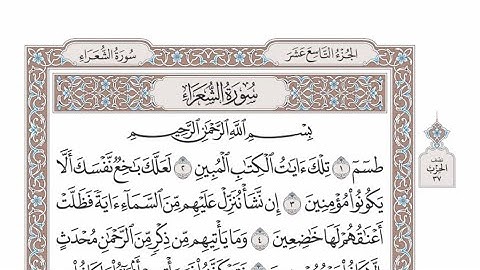 سُورَةُ الشُّعَرَاءِ
الجُزْءُ التَّاسِعَ عَشَرَ
سُورَةُ الشُّعَرَاءِ
بِسْمِ اللَّهِ الرَّحْمَٰنِ الرَّحِيمِ
طسٓمٓ ١ تِلْكَ ءَايَٰتُ الْكِتَٰبِ الْمُبِينِ ٢ لَعَلَّكَ بَٰخِعٌ نَّفْسَكَ أَلَّا
يَكُونُوا۟ مُؤْمِنِينَ ٣ إِن نَّشَأْ نُنَزِّلْ عَلَيْهِم مِّنَ السَّمَآءِ ءَايَةً فَظَلَّتْ
أَعْنَٰقُهُمْ لَهَا خَٰضِعِينَ ٤ وَمَا يَأْتِيهِم مِّن ذِكْرٍ مِّنَ الرَّحْمَٰنِ مُحْدَثٍ
نصف
الحزب
٣٧